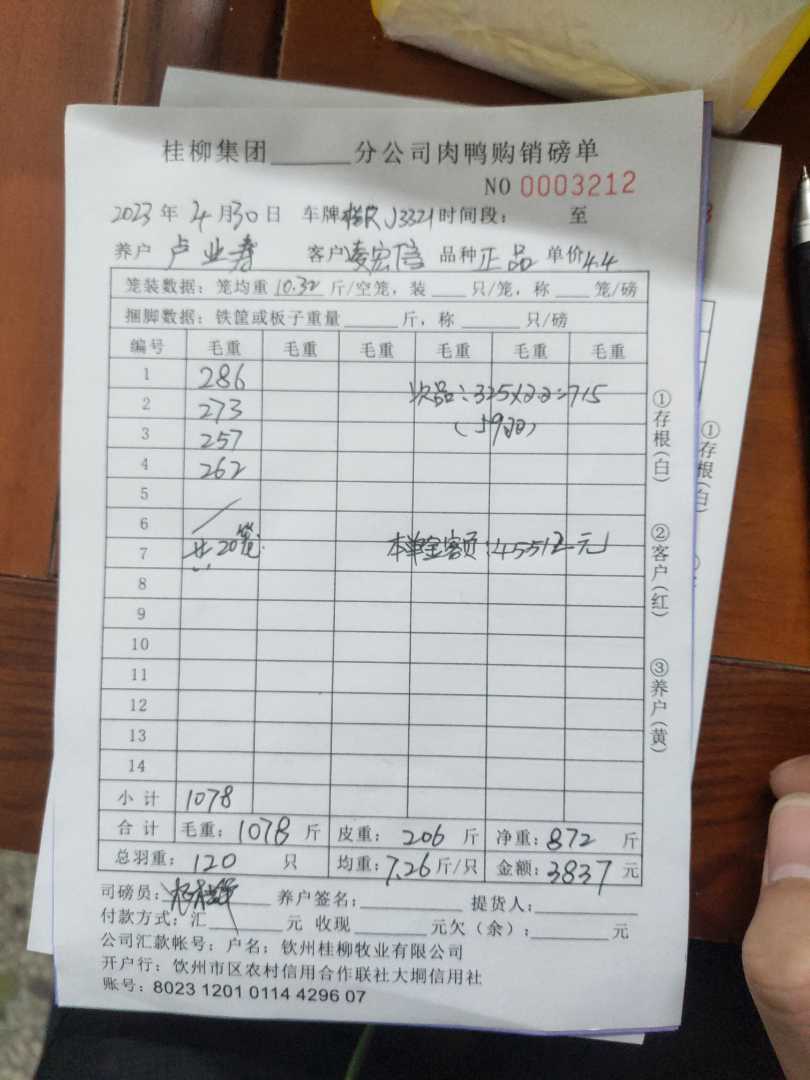 桂柳集团______分公司肉鸭购销磅单
NO 0003212
2023年4月30日 车牌 J3321 时间段: 至
养户 卢业寿 客户 凌宏信 品种 正品 单价 4.4
笼装数据: 笼均重 10.32 斤/空笼, 装____只/笼, 称____笼/磅
捆脚数据: 铁筐或板子重量______斤, 称______只/磅
编号 毛重 毛重 毛重 毛重 毛重 毛重
1 286 次品:325×2.2=715
2 273
3 257
4 262
5
6
7 共20笼 4552元
8
9
10
11
12
13
14
小计 1078
合计 毛重: 1078 斤 皮重: 206 斤 净重: 872 斤
总羽重: 120 只 均重: 7.26 斤/只 金额: 3837 元
司磅员: 养户签名:__________ 提货人:__________
付款方式: 汇________元 收现________元欠(余):________元
公司汇款帐号: 户名: 钦州桂柳牧业有限公司
开户行: 饮州市区农村信用合作联社大垌信用社
账号: 8023 1201 0114 4296 07
①存根(白) ②客户(红) ③养户(黄)
①存根(白)